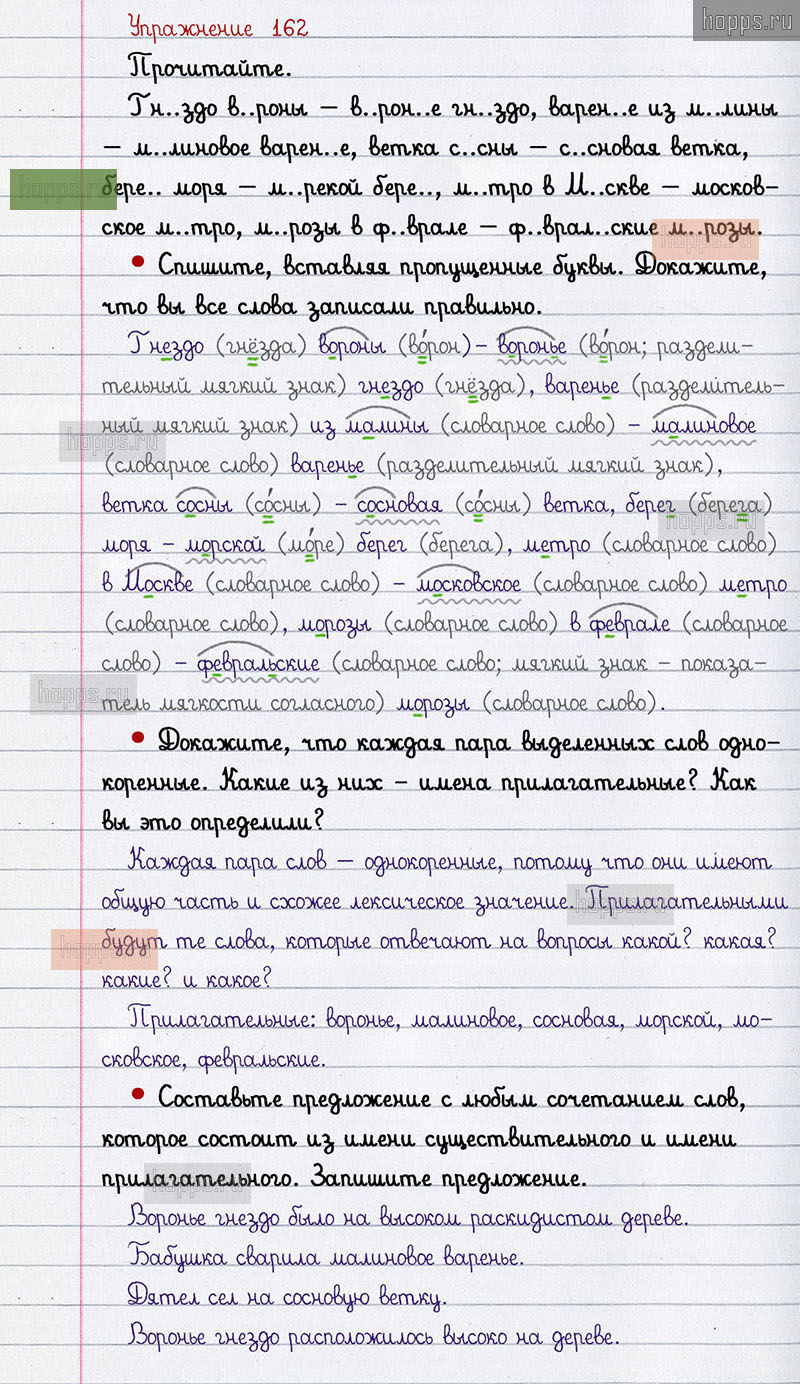 hopps.ru
Упражнение 162
Прочитайте.
Гн..здо в..роны — в..рон..е гн..здо, варен..е из м..лины
— м..линовое варен..е, ветка с..сны — с..сновая ветка,
бере.. моря — м..рской бере.., м..тро в М..скве — москов-
ское м..тро, м..розы в ф..врале — ф..врал..ские м..розы.
• Спишите, вставляя пропущенные буквы. Докажите,
что вы все слова записали правильно.
Гнездо (гнёзда) вороны (во́рон) – воронье (во́рон; раздели-
тельный мягкий знак) гнездо (гнёзда), варенье (разделитель-
ный мягкий знак) из малины (словарное слово) – малиновое
(словарное слово) варенье (разделительный мягкий знак),
ветка сосны (со́сны) – сосновая (со́сны) ветка, берег (берега)
моря – морской (мо́ре) берег (берега), метро (словарное слово)
в Москве (словарное слово) – московское (словарное слово) метро
(словарное слово), морозы (словарное слово) в феврале (словарное
слово) – февральские (словарное слово; мягкий знак – показа-
тель мягкости согласного) морозы (словарное слово).
• Докажите, что каждая пара выделенных слов одно-
коренные. Какие из них – имена прилагательные? Как
вы это определили?
Каждая пара слов — однокоренные, потому что они имеют
общую часть и схожее лексическое значение. Прилагательными
будут те слова, которые отвечают на вопросы какой? какая?
какие? и какое?
Прилагательные: воронье, малиновое, сосновая, морской, мо-
сковское, февральские.
• Составьте предложение с любым сочетанием слов,
которое состоит из имени существительного и имени
прилагательного. Запишите предложение.
Воронье гнездо было на высоком раскидистом дереве.
Бабушка сварила малиновое варенье.
Дятел сел на сосновую ветку.
Воронье гнездо расположилось высоко на дереве.